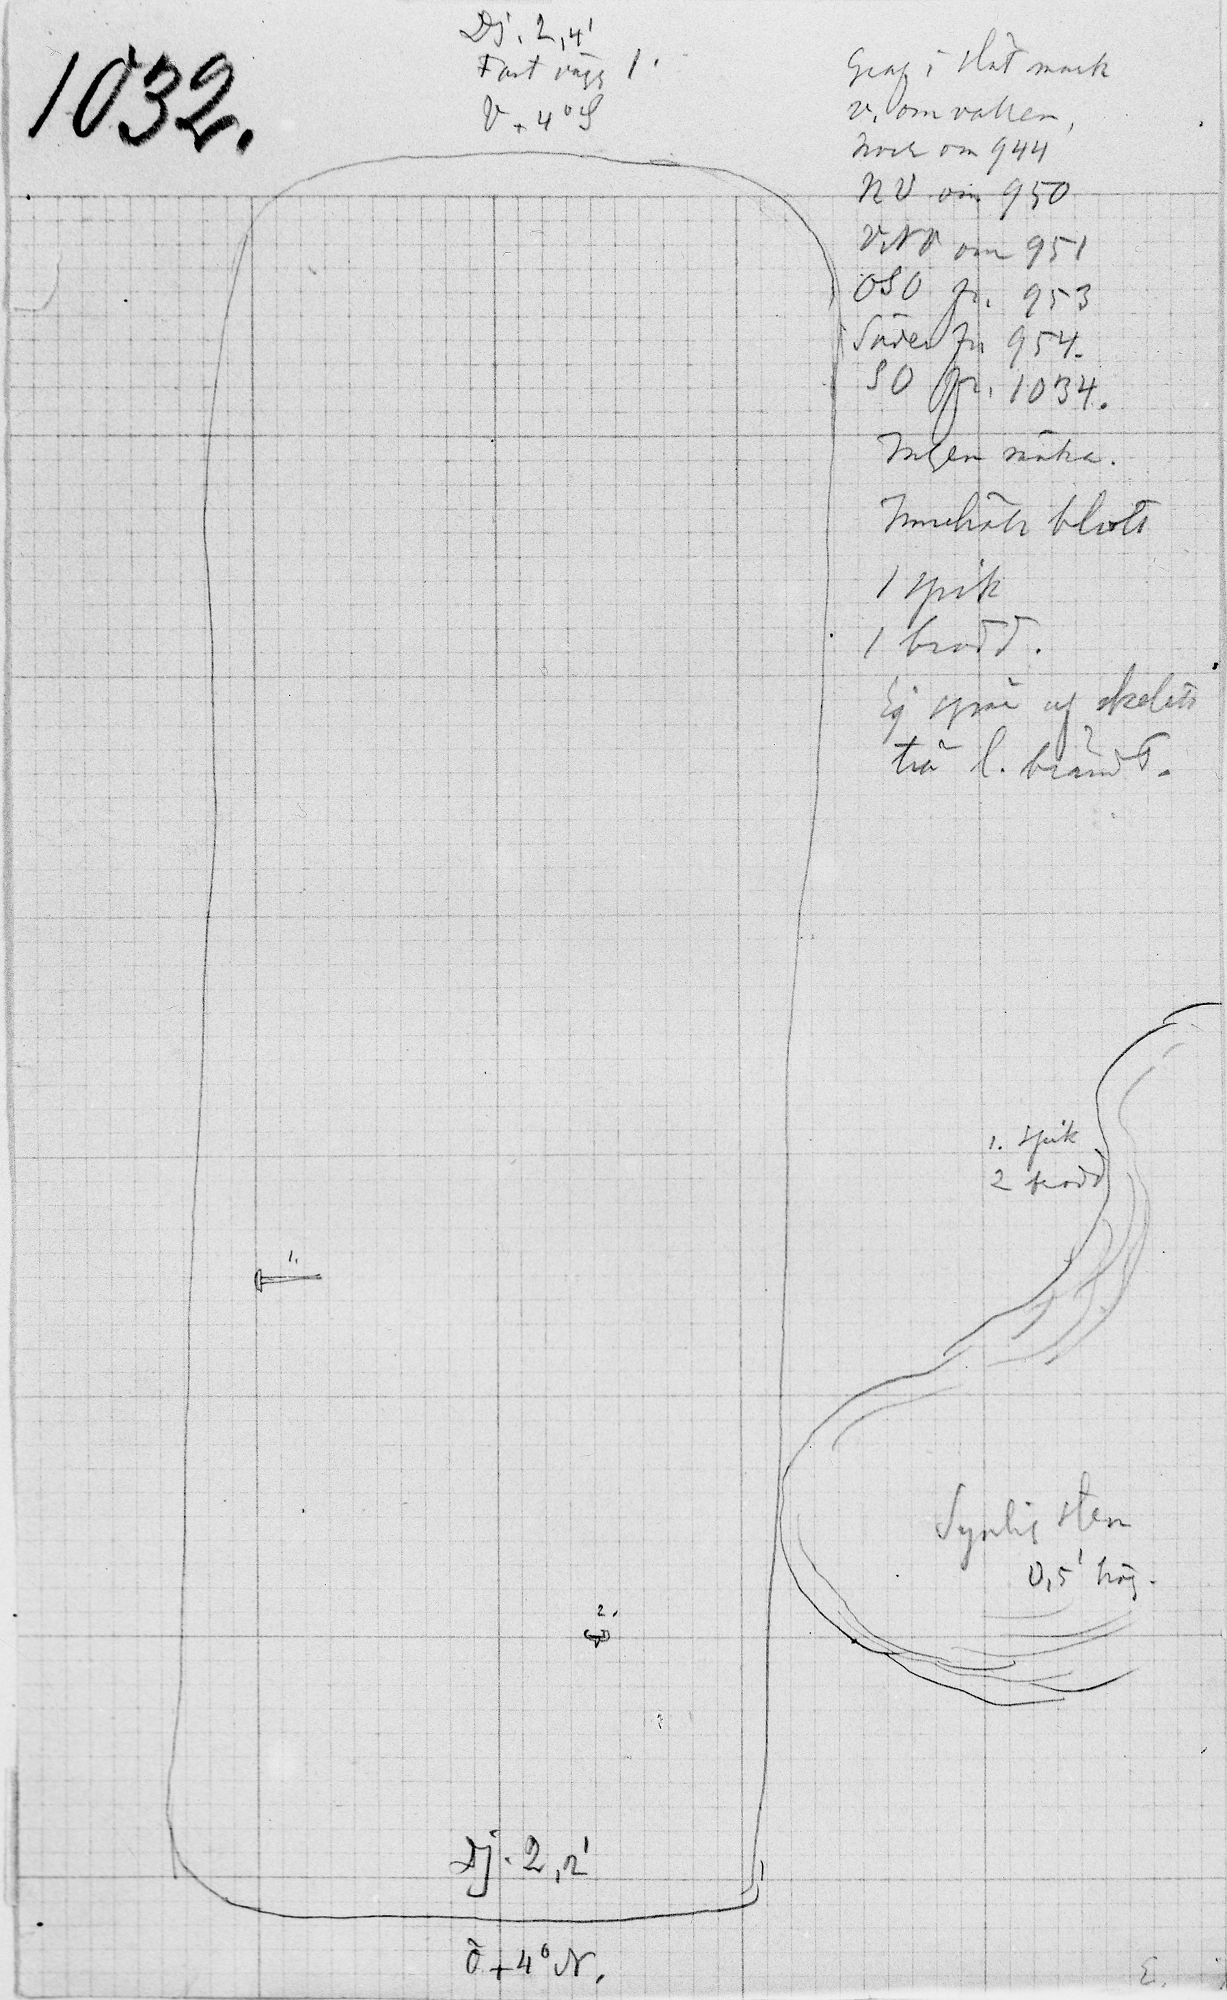 1032.
Dj. 2,4'
Fast vägg 1'
V + 4° S
Graf i slät mark
v. om vallen,
norr om 944
NV om 950
VNV om 951
OSO fr. 953
Söder fr 954.
SO fr. 1034.
Ingen märke.
Innehöll blott
1 spik
1 brodd.
Ej spår af skelett
trä l. brändt.
1. spik
2 brodd
1.
Synlig sten
0,5' hög.
2.
Dj. 2,2'
Ö + 4° N.
E.